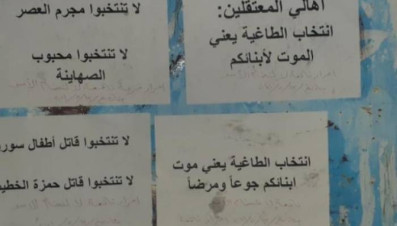 أهالي المعتقلين:
انتخاب الطاغية يعني
الموت لأبنائكم
لا تنتخبوا مجرم العصر
لا تنتخبوا محبوب
الصهاينة
انتخاب الطاغية يعني موت
ابنائكم جوعاً ومرضاً
لا تنتخبوا قاتل أطفال سور
لا تنتخبوا قاتل حمزة الخطي